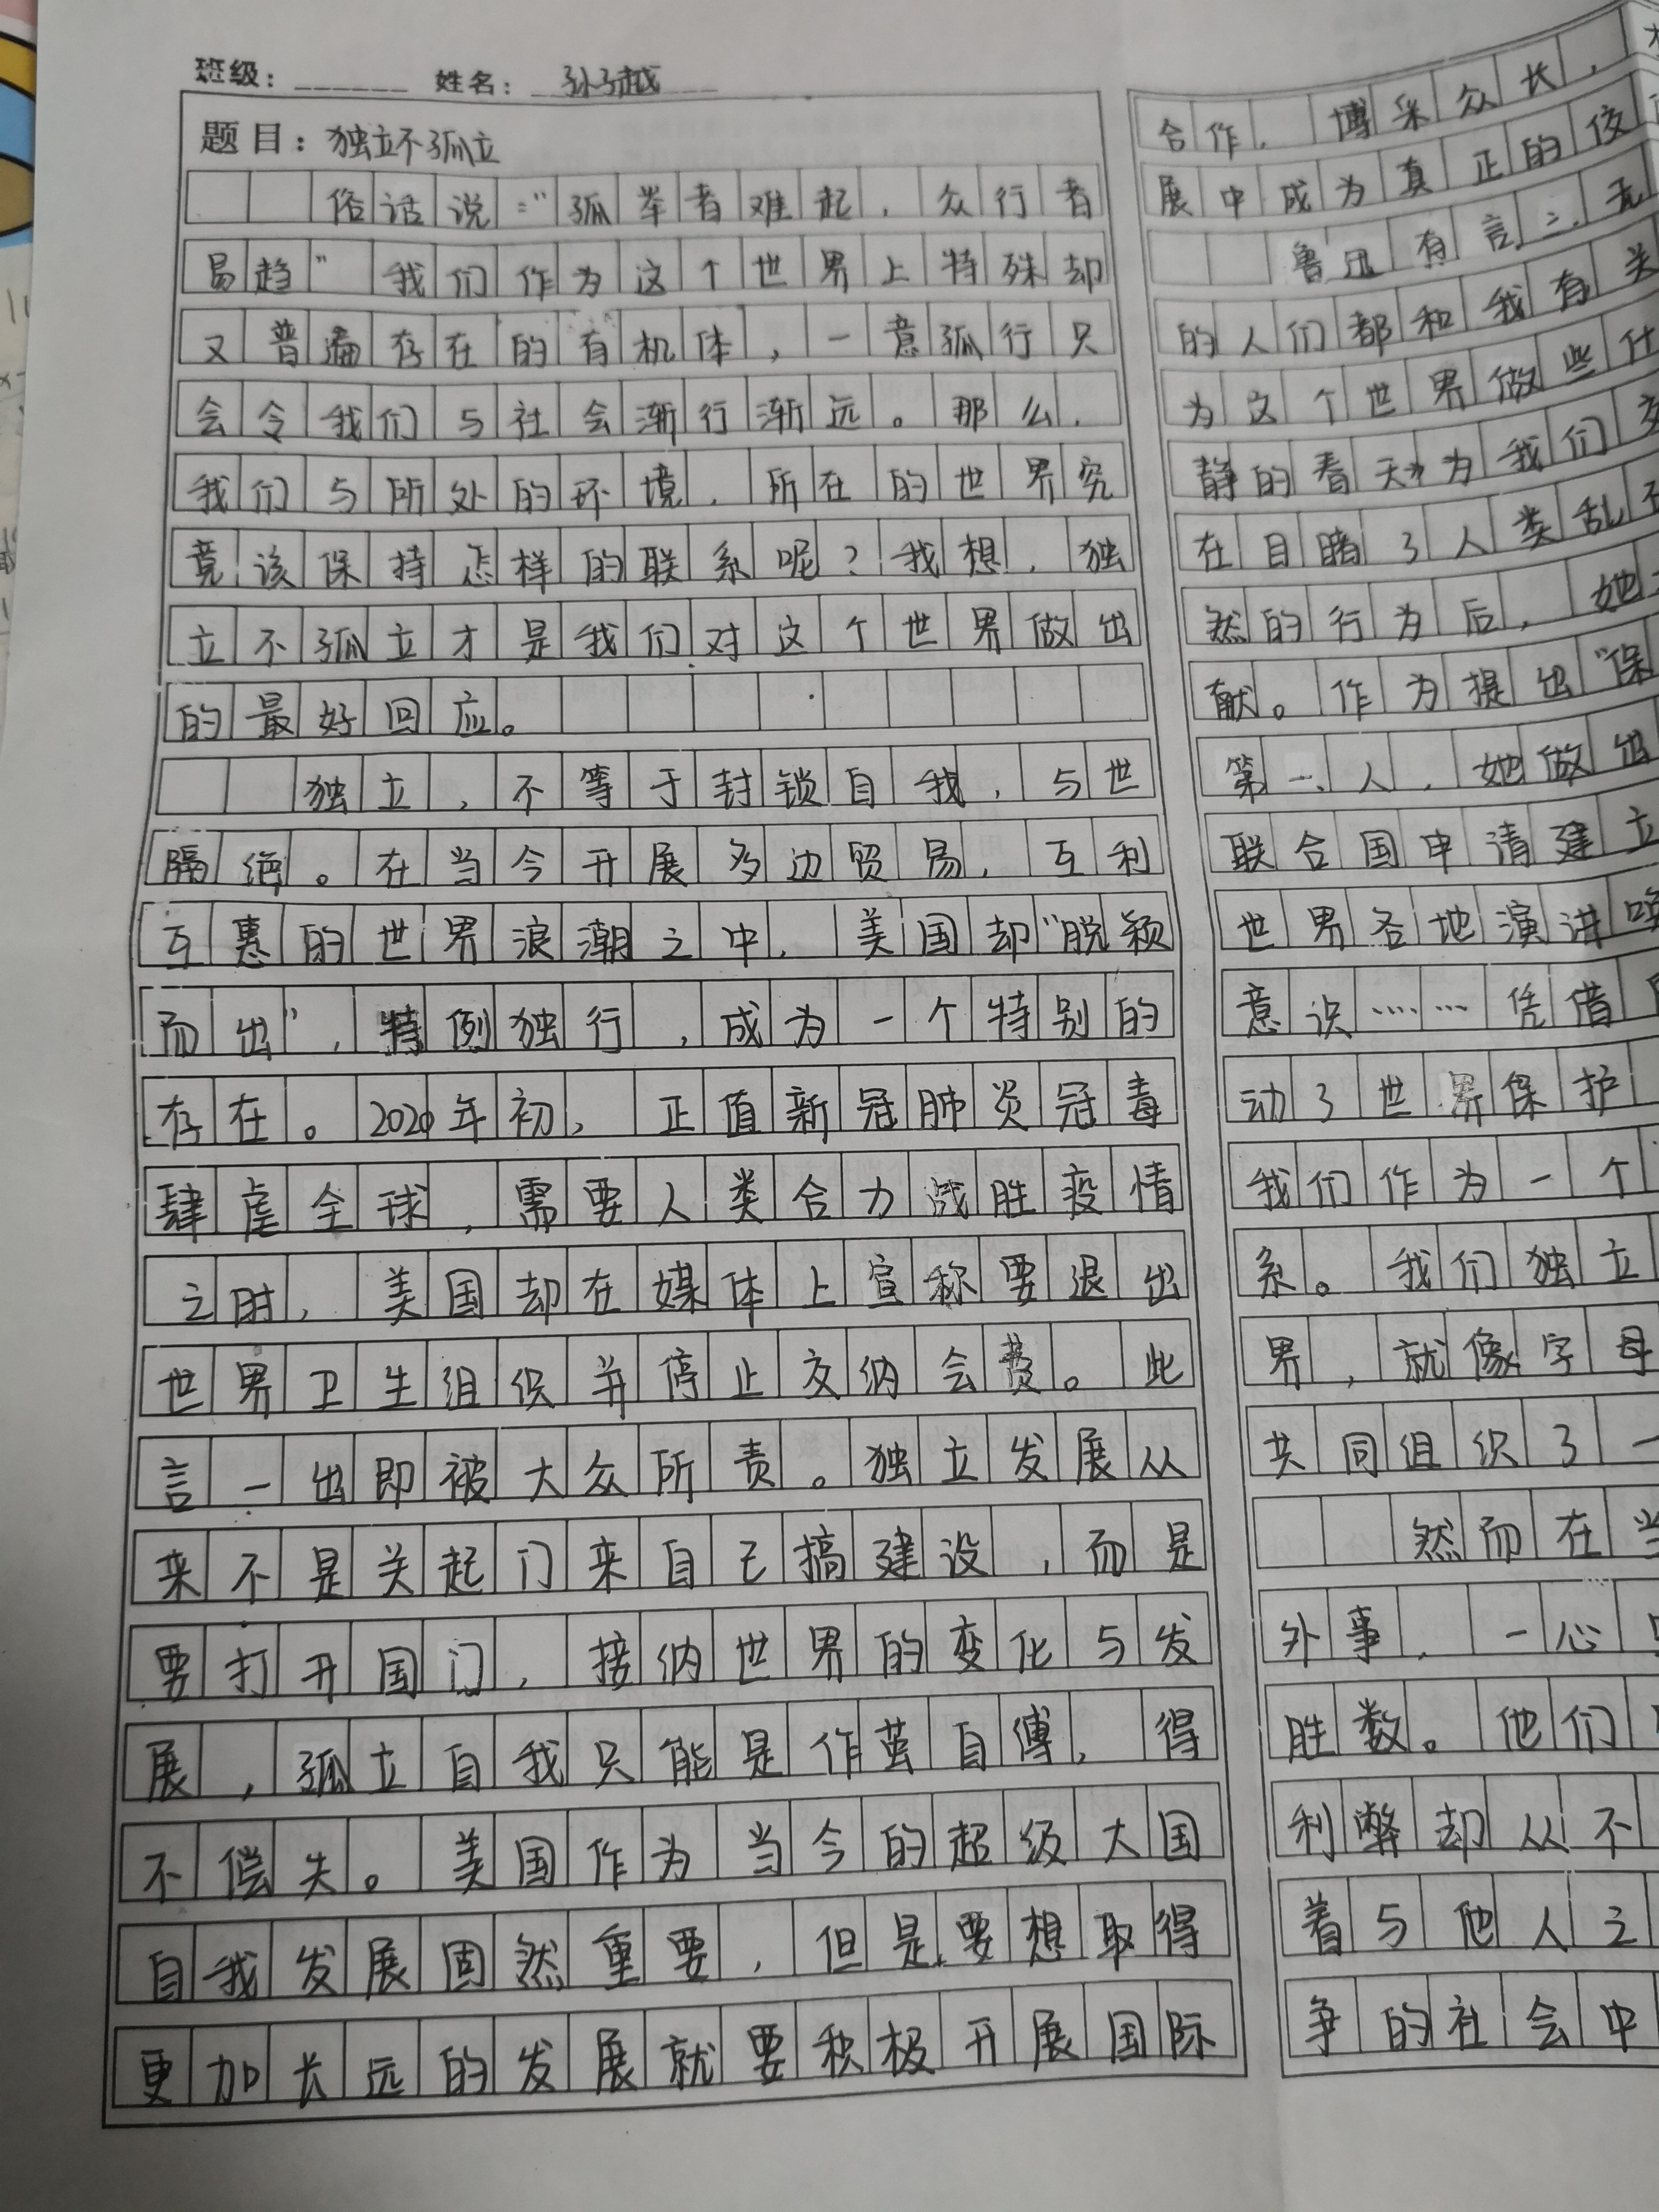 班级：______ 姓名：孙子越
题目：独立不孤立
俗话说："孤举者难起，众行者
易趋"我们作为这个世界上特殊却
又普遍存在的有机体，一意孤行只
会令我们与社会渐行渐远。那么，
我们与所处的环境，所在的世界究
竟该保持怎样的联系呢？我想，独
立不孤立才是我们对这个世界做出
的最好回应。
独立，不等于封锁自我，与世
隔绝。在当今开展多边贸易，互利
互惠的世界浪潮之中，美国却"脱颖
而出"，特例独行，成为一个特别的
存在。2020年初，正值新冠肺炎冠毒
肆虐全球，需要人类合力战胜疫情
之时，美国却在媒体上宣称要退出
世界卫生组织并停止交纳会费。此
言一出即被大众所责。独立发展从
来不是关起门来自己搞建设，而是
要打开国门，接纳世界的变化与发
展，孤立自我只能是作茧自缚，得
不偿失。美国作为当今的超级大国
自我发展固然重要，但是要想取得
更加长远的发展就要积极开展国际
合作，博采众长，
展中成为真正的佼
鲁迅有言：无
的人们都和我有关
为这个世界做些什
静的春天》为我们
在目睹了人类乱
然的行为后，她
献。作为提出"保
第一人，她做出
联合国申请建立
世界各地演讲唤
意识……凭借
动了世界保护
我们作为一个
系。我们独立
界，就像字母
共同组织了一
然而在当
外事，一心
胜数。他们
利弊却从不
着与他人之
争的社会中